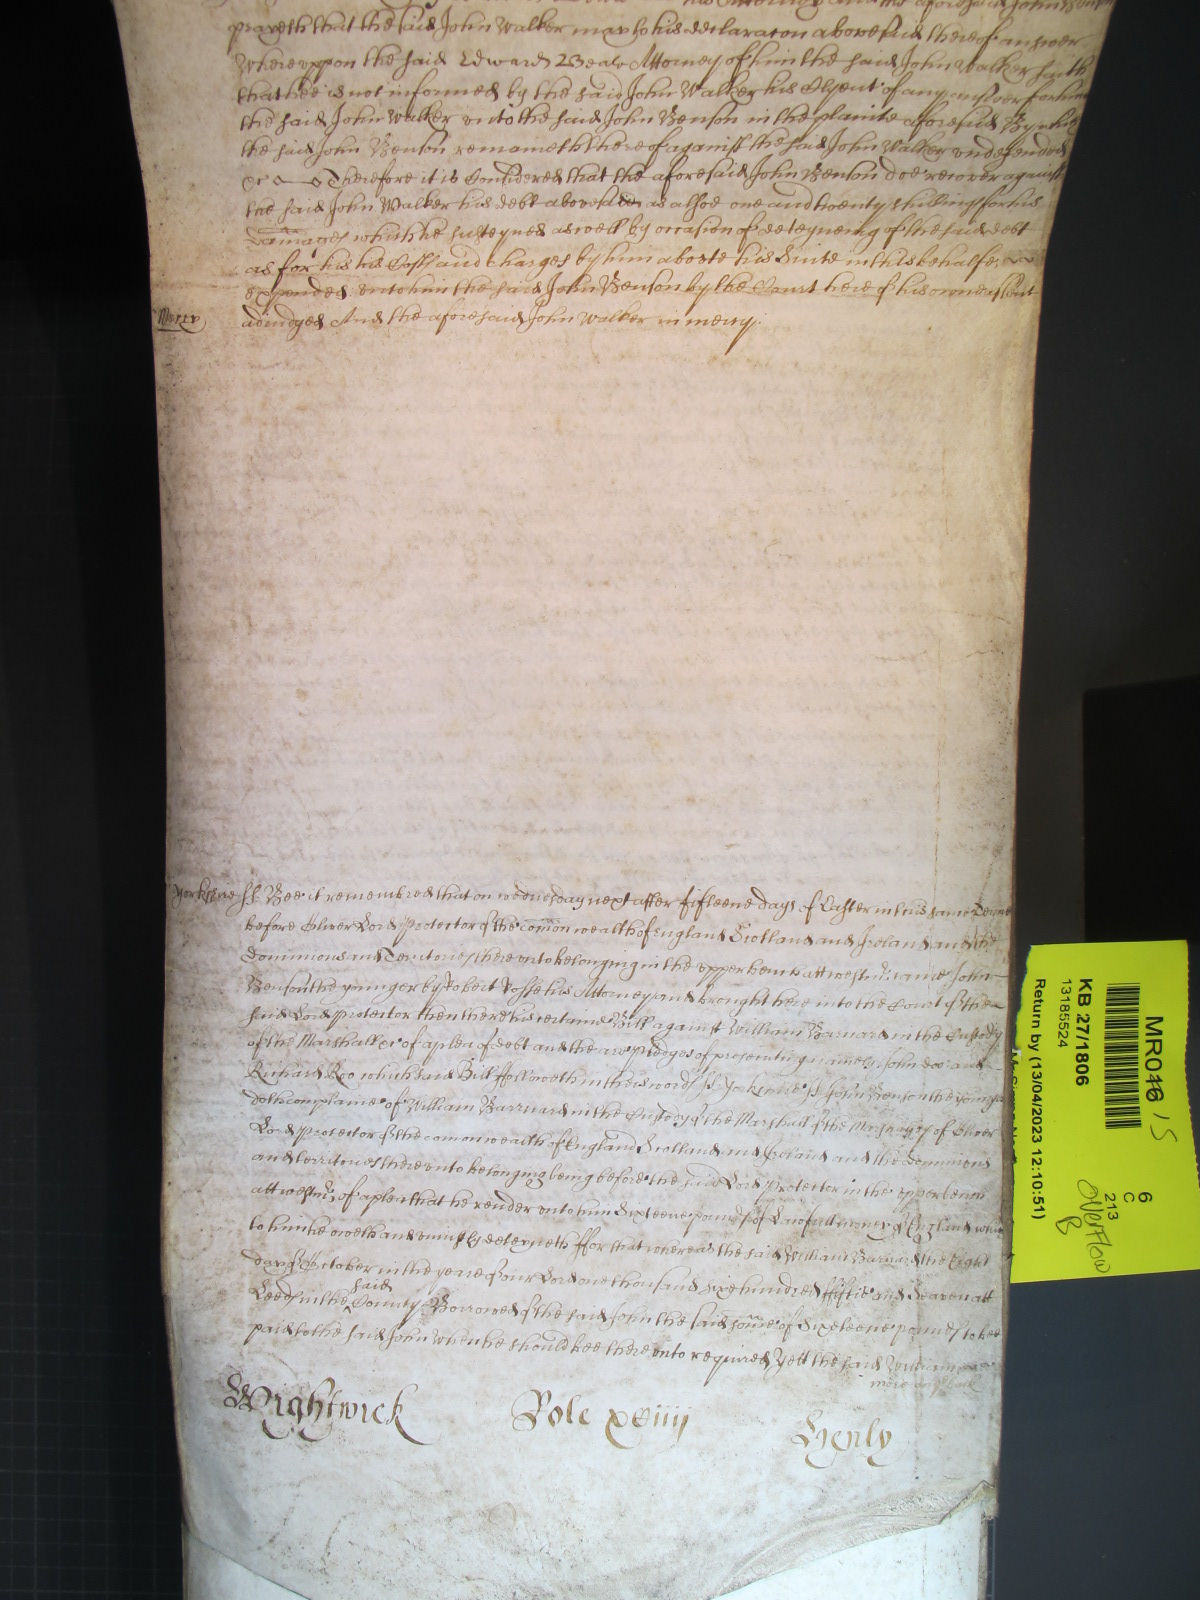 the aforesaid John Benson
prayeth that the said John Walker may to his declaracon abovesaid thereof answer
Whereuppon the said Edward Beale Attorney of him the said John Walker saith
that hee is not informed by the said John Walker his Clyent of any answer for him
the said John Walker unto the said John Benson in the plainte aforesaid By which
the said John Benson remaineth thereof against the said John Walker undefended
&c Therefore it is Considered that the aforesaid John Benson doe recover against
the said John Walker his debt abovesaid as alsoe one and twenty shillings for his
Damages which he susteyned aswell by occasion of deteyneing of the said debt
as for his his Costs and charges by him aboute his Suite in this behalfe
expended unto him the said John Benson by the Court here of his owne assent
adiudged And the aforesaid John Walker in mercy.
Mercy
Yorkshire ss Bee it remembred that on wednesday next after fifteene days of Easter in this same Terme
before Oliver Lord Protector of the comon wealth of England Scotland and Ireland and the
Dominions and Territories thereunto belonging in the upper bench att westmr: came John
Benson the younger by Robert his Attorney and brought here into the Court of the
said Lord protector then there his certaine Bill against William Barnard in the Custody
of the Marshall &c of a plea of debt and there are pledges of prosecuting namely John doe and
Richard Roo which said Bill followeth in these words ss Yorkshire ss John Benson the younger
doth complaine of William Barnard in the Custody of the Marshall of the Marshalsey of Oliver
Lord Protector of the comon wealth of England Scotland and Ireland and the dominions
and territories thereunto belonging being before the said Lord Protector in the upper bench
att westmr: of a plea that he render unto him Sixteene pounds of Lawfull money of England which
to him he oweth and uniustly deteyneth ffor that whereas the said William Barnard the Eight
day of October in the yeare of our Lord one thousand sixe hundred fiftie and Seaven att
Leeds in the said County Borrowed of the said John the said some of Sixteene pounds to bee
paid to the said John when he should bee thereunto required Yett the said William
Wightwick Role xxiiij Henly
MR046 / 15
KB 27/1806
13185524
Return by (13/04/2023 12:10:51)
6
C
213
Overflow
B